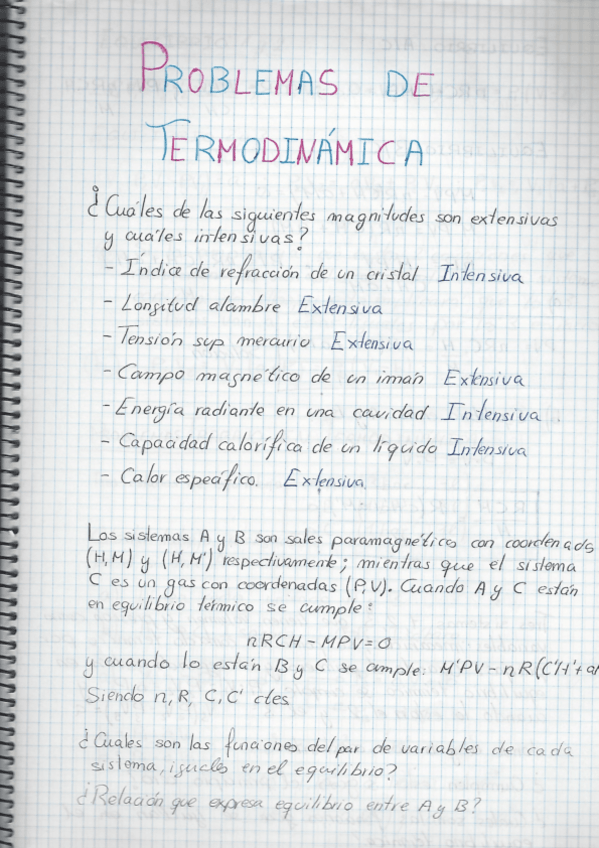 PROBLEMAS DE
TERMODINÁMICA
¿Cuáles de las siguientes magnitudes son extensivas
y cuáles intensivas?
- Índice de refracción de un cristal Intensiva
- Longitud alambre Extensiva
- Tensión sup mercurio Extensiva
- Campo magnético de un imán Extensiva
- Energía radiante en una cavidad Intensiva
- Capacidad calorífica de un líquido Intensiva
- Calor específico. Extensiva
Los sistemas A y B son sales paramagnéticas con coordenadas
(H,M) y (H,M') respectivamente; mientras que el sistema
C es un gas con coordenadas (P,V). Cuando A y C están
en equilibrio térmico se cumple:
nRCH - MPV = 0
y cuando lo están B y C se cumple: M'PV - nR(C'H' +
Siendo n, R, C, C' ctes
¿Cuales son las funciones del par de variables de cada
sistema, iguales en el equilibrio?
¿Relación que expresa equilibrio entre A y B?